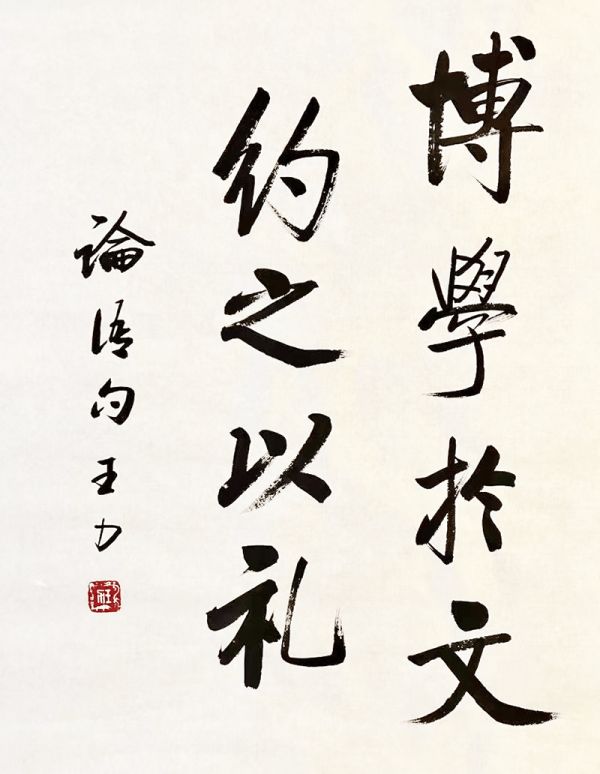 博學於文
約之以礼
論語句王力